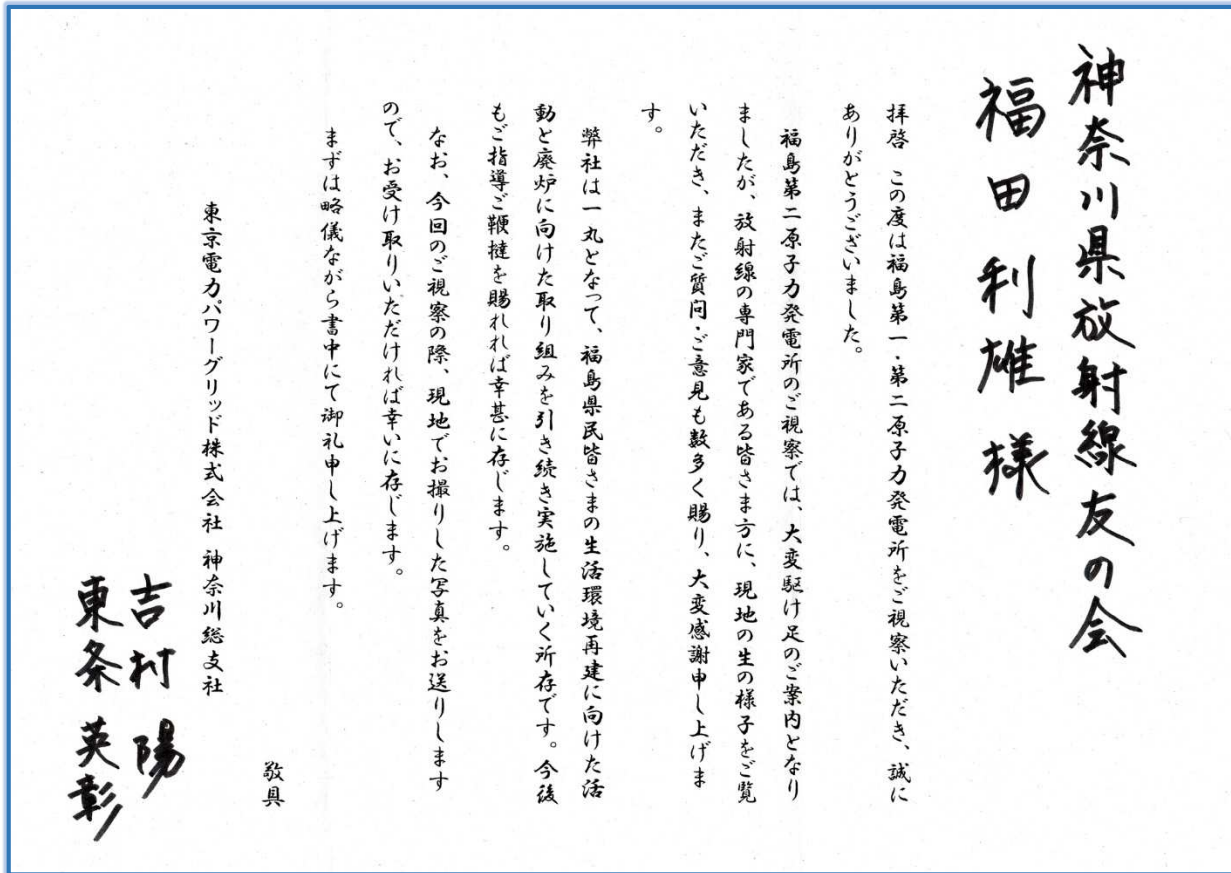 神奈川県放射線友の会
福田利雄様
拝啓 この度は福島第一・第二原子力発電所をご視察いただき、誠に
ありがとうございました。
福島第二原子力発電所のご視察では、大変駆け足のご案内となり
ましたが、放射線の専門家である皆さま方に、現地の生の様子をご覧
いただき、またご質問・ご意見も数多く賜り、大変感謝申し上げま
す。
弊社は一丸となって、福島県民皆さまの生活環境再建に向けた活
動と廃炉に向けた取り組みを引き続き実施していく所存です。今後
もご指導ご鞭撻を賜れれば幸甚に存じます。
なお、今回のご視察の際、現地でお撮りした写真をお送りします
ので、お受け取りいただければ幸いに存じます。
まずは略儀ながら書中にて御礼申し上げます。
敬具
東京電力パワーグリッド株式会社 神奈川総支社
吉村 陽
東条 英彰